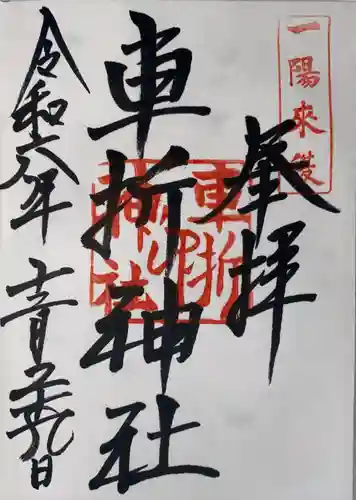 一陽來復
奉拝
車折神社
車折
神社
令和六年
十二月二十九日